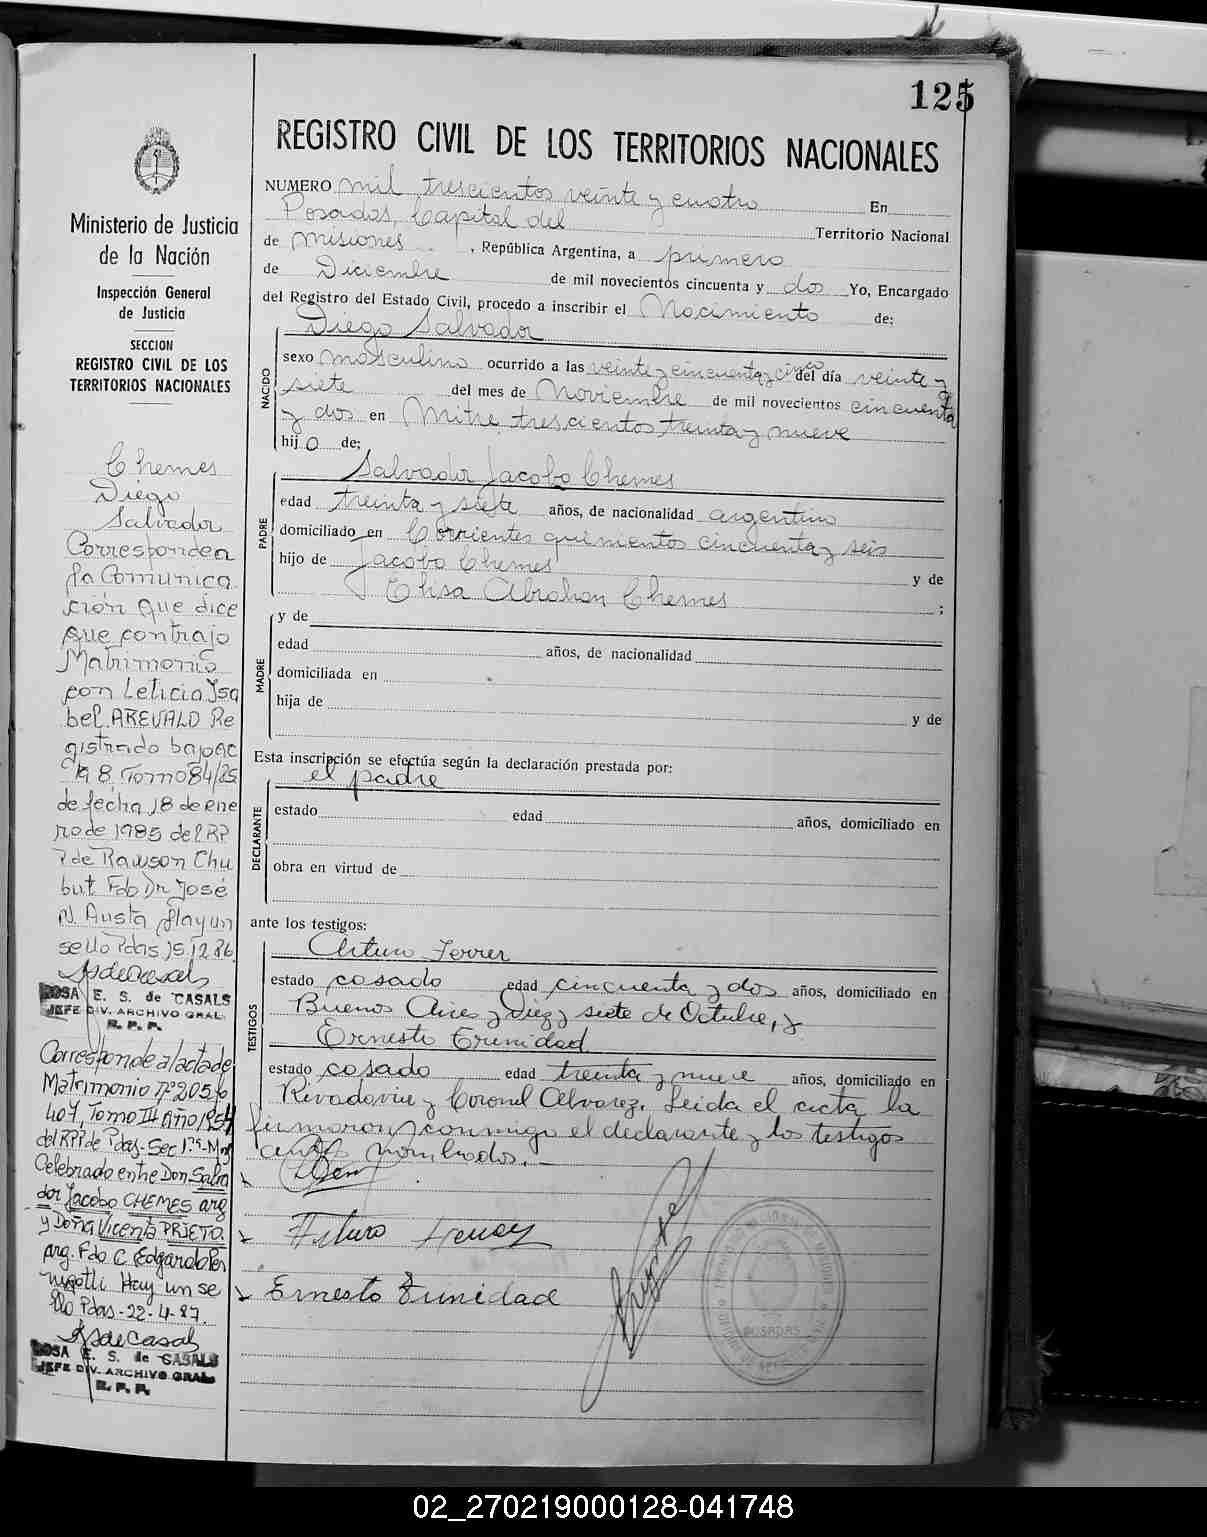 125
REGISTRO CIVIL DE LOS TERRITORIOS NACIONALES
NUMERO mil trescientos veinte y cuatro En
Posadas, Capital del Territorio Nacional
de Misiones, República Argentina, a primero
de Diciembre de mil novecientos cincuenta y dos Yo, Encargado
del Registro del Estado Civil, procedo a inscribir el Nacimiento de:
Diego Salvador
NACIDO
sexo masculino ocurrido a las veinte y cincuenta y cinco del día veinte y
siete del mes de Noviembre de mil novecientos cincuenta
y dos en Mitre trescientos treinta y nueve
hijo de;
PADRE
Salvador Jacobo Chemes
edad treinta y siete años, de nacionalidad argentino
domiciliado en Corrientes quinientos cincuenta y seis
hijo de Jacobo Chemes y de
Elisa Abrahan Chemes ;
MADRE
y de
edad años, de nacionalidad
domiciliada en
hija de y de
Esta inscripción se efectúa según la declaración prestada por:
el padre
DECLARANTE
estado edad años, domiciliado en
obra en virtud de
ante los testigos:
TESTIGOS
Arturo Ferrer
estado casado edad cincuenta y dos años, domiciliado en
Buenos Aires y Diez y siete de Octubre, y
Ernesto Trinidad
estado casado edad treinta y nueve años, domiciliado en
Rivadavia y Coronel Alvarez. Leida el acta la
firmaron conmigo el declarante y los testigos
antes nombrados.
Arturo Ferrer
Ernesto Trinidad
POSADAS
Ministerio de Justicia
de la Nación
Inspección General
de Justicia
SECCION
REGISTRO CIVIL DE LOS
TERRITORIOS NACIONALES
Chemes
Diego
Salvador
Corresponde a
la Comunica
ción que dice
que contrajo
Matrimonio
con Leticia Isa
bel AREVALO Re
gistrado bajo ac
ta 8 Tomo 84/85
de fecha 18 de ene
ro de 1985 del RP
P de Rawson Chu
but Fdo Dr José
N. Austa Hay un
sello Pdas 15.12.86
RSdeCasals
ROSA E. S. de CASALS
JEFE DIV. ARCHIVO GRAL.
R. P. P.
Corresponde al acta de
Matrimonio Nº 205 Fo
407, Tomo III Año 1954
del RPP de Pdas-Sec 1ra-Mnes
Celebrado entre Don Salva
dor Jacobo CHEMES arg
y Doña Vicenta PRIETO.
arg. Fdo C. Edgardo
Hay un se
llo Pdas-22-4-87.
RSdeCasals
ROSA E. S. de CASALS
JEFE DIV. ARCHIVO GRAL.
R. P. P.
02_270219000128-041748